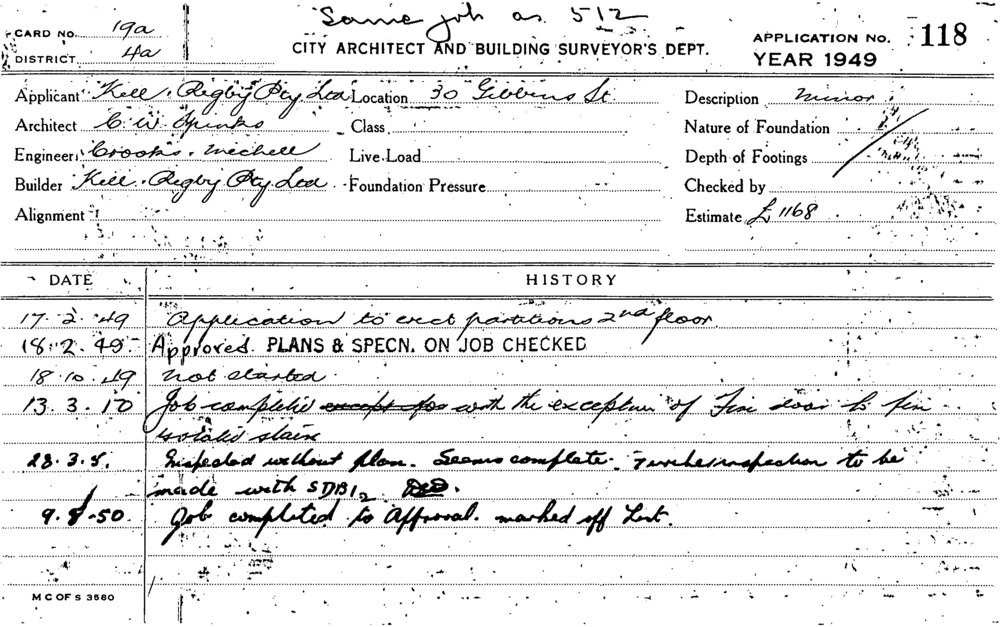 Same job as 512
CARD No. 19a
DISTRICT 4a
CITY ARCHITECT AND BUILDING SURVEYOR'S DEPT.
APPLICATION No. 118
YEAR 1949
Applicant Kell & Rigby Pty Ltd Location 30 Gibbens St. Description minor
Architect C. W. Class Nature of Foundation
Engineer Crooks, Michell Live Load Depth of Footings
Builder Kell & Rigby Pty Ltd Foundation Pressure Checked by
Alignment Estimate £1168
DATE HISTORY
17.2.49 Application to erect partitions 2nd floor
18.2.49 Approved. PLANS & SPECN. ON JOB CHECKED
18.10.49 Not started.
13.3. Job complete except for with the exception of Fire door to fire
isolated stairs
28.3.5. Inspected without plan. Seems complete. Further inspection to be
made with SDBI
9.8.50. Job completed to Approval. marked off List.
M C OF S 3560